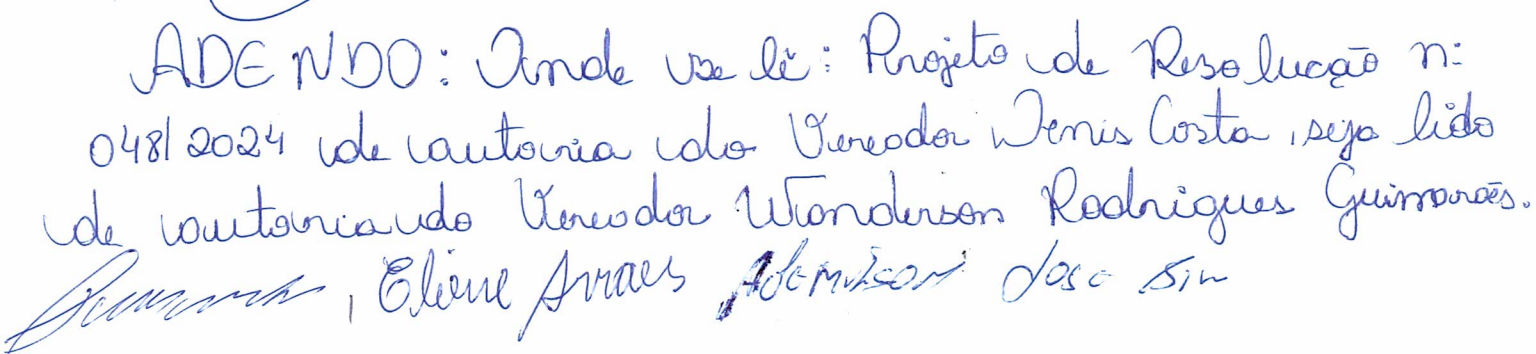 ADENDO: Onde se lê: Projeto de Resolucação n:
048/2024 de autoria do Vereador Denis Costa, seja lido
de autoria do Vereador Wanderson Rodrigues Guimarães.
, Eliene Arraes Ademilson José